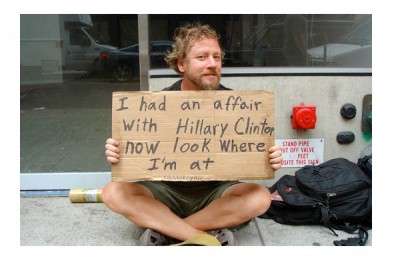 I had an affair
with Hillary Clinton
now look where
I'm at
STAND PIPE
UT OFF VALVE
FEET
POSITE THIS SIGN